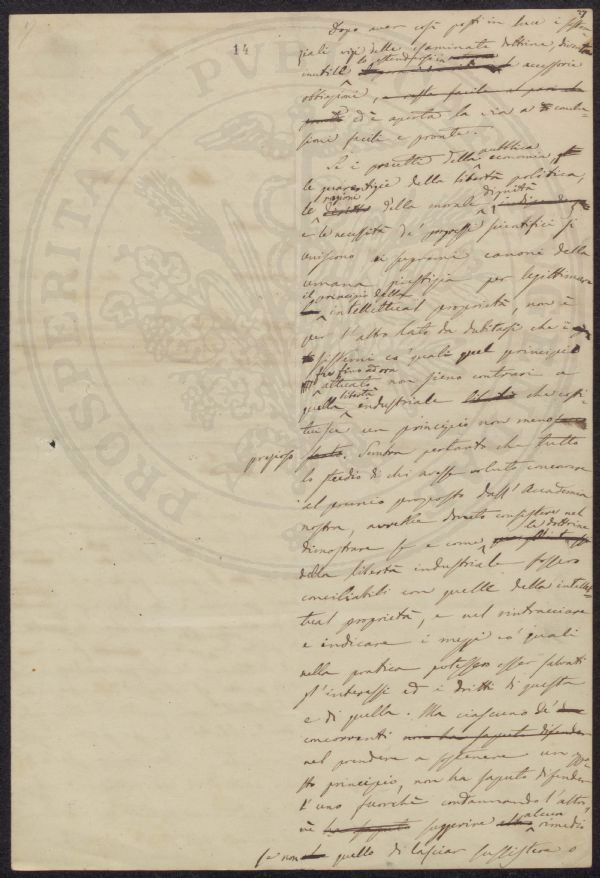 14
27
Dopo aver così posti in luce i sostan=
ziali vizi delle esaminate dottrine, diventa
inutile lo estendersi in accessorie
obbiezioni, e resta facile al pari che
ed è aperta la via a conclu=
sioni facili e pronte.
Se i precetti della pubblica economia,
le guarentigie della libertà politica,
le ragioni della morale dignità
e le necessità de' progressi scientifici si
uniscono ai supremi canoni della
umana giustizia per legittimare
il principio della intellettual proprietà, non è
per l'altro lato da dubitarsi che i
sistemi co' quali quel principio
fu fino ad ora attuato non sieno contrari a
quella libertà industriale che costi
tuisce un principio non meno
prezioso. Sembra pertanto che tutto
lo studio di chi avesse voluto concorrere
al premio proposto dall'Accademia
nostra, avrebbe dovuto consistere nel
dimostrare se e come le dottrine
della libertà industriale fossero
conciliabili con quelle della intellet=
tual proprietà, e nel rintracciare
e indicare i mezzi co' quali
nella pratica potessero esser salvati
gl'interessi ed i dritti di questa
e di quella. Ma ciascuno de'
concorrenti non ha saputo difender
nel prendere a sostenere un
principio, non ha saputo difender
l'uno fuorchè condannando l'altro,
nè ha saputo suggerire alcun rimedio
se non quello di lasciar sussistere o
PROSPERITATI PUBLICAE